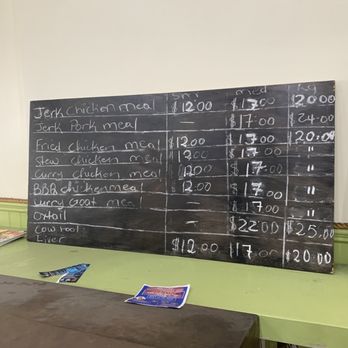 sml med Lg
Jerk Chicken meal $12.00 $17.00 $20.00
Jerk Pork meal — $17.00 $24.00
Fried chicken meal $12.00 $17.00 $20.00
Stew chicken meal $12.00 $17.00 "
Curry chicken meal 12.00 $17.00 "
BBQ chicken meal $12.00 $17.00 "
Curry Goat meal — $17.00 "
Oxtail — $22.00 $25.00
Cow foot
Liver $12.00 17.00 $20.00